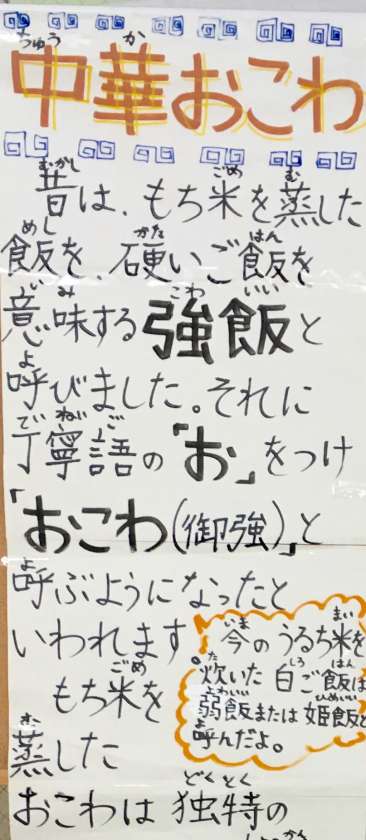 ちゅう か
中華おこわ
むかし ごめ む
昔は、もち米を蒸した
めし かた はん
飯を、硬いご飯を
いみ こわ いい
意味する強飯と
よ
呼びました。それに
ご
丁寧語の「お」をつけ
「おこわ(御強)」と
よ
呼ぶようになったと
いわれます。
ごめ
もち米を
む
蒸した
どく とく
おこわは独特の
いま まい
今のうるち米を
た しろ はん
炊いた白ご飯は
ひめいい
弱飯または姫飯と
よ
呼んだよ。